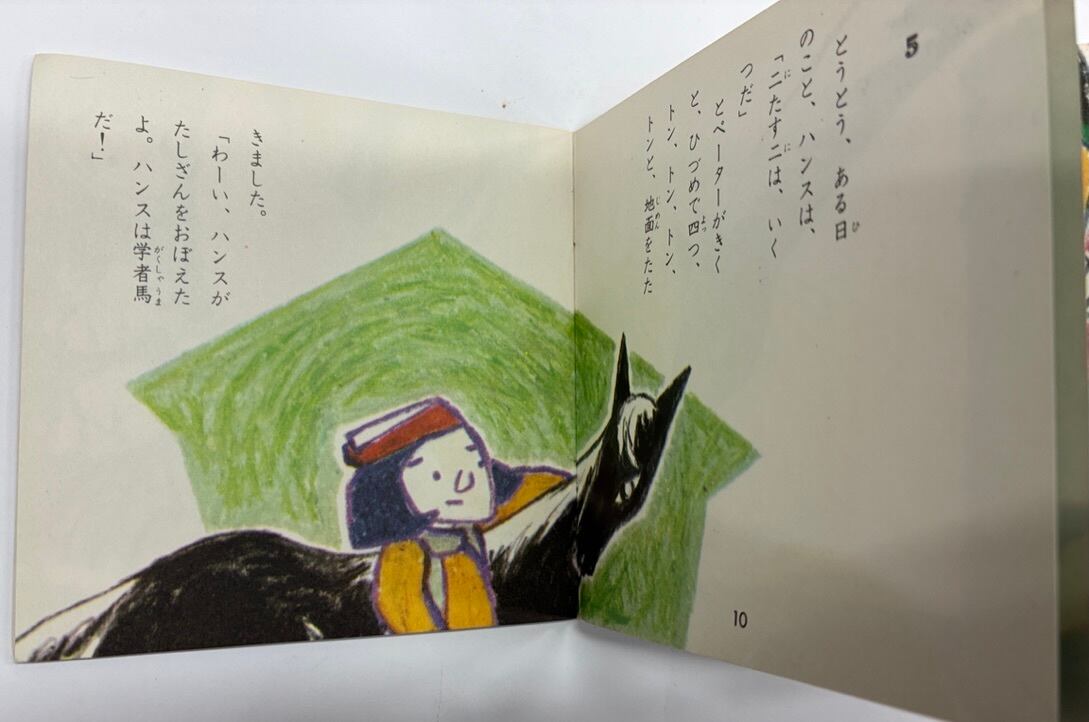 5
とうとう、ある日
のこと、ハンスは、
「二たす二は、いく
つだ」
とペーターがきく
と、ひづめで四つ、
トン、トン、トン、
トンと、地面をたた
10
きました。
「わーい、ハンスが
たしざんをおぼえた
よ。ハンスは学者馬
だ！」